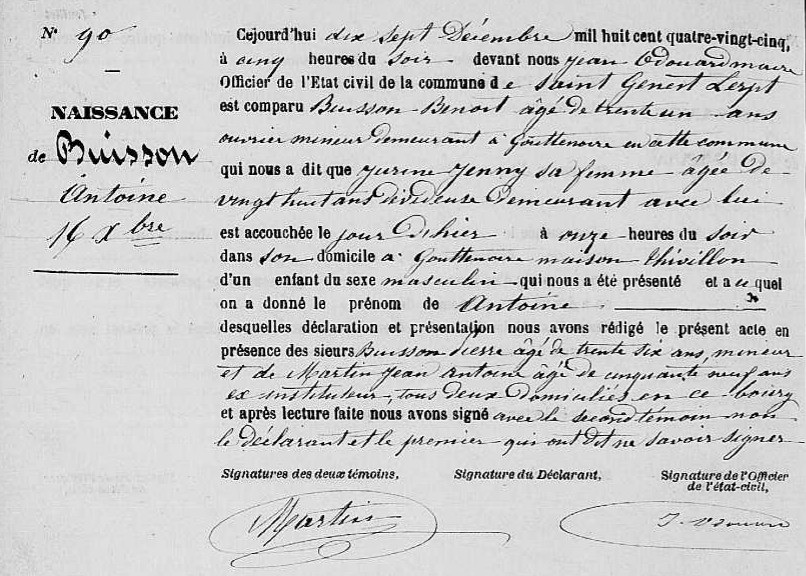 N° 90
NAISSANCE
de Buisson
Antoine
16 Xbre
Cejourd'hui dix sept Décembre mil huit cent quatre-vingt-cinq,
à cinq heures du soir devant nous Jean Edouard maire
Officier de l'Etat civil de la commune de Saint Genest Lerpt
est comparu Buisson Benoit âgé de trente un ans
ouvrier mineur demeurant à Gouttenoire en cette commune
qui nous a dit que Jurine Jenny sa femme âgée de
vingt huit ans dévideuse demeurant avec lui
est accouchée le jour d'hier à onze heures du soir
dans son domicile à Gouttenoire maison Thivillon
d'un enfant du sexe masculin qui nous a été présenté et au quel
on a donné le prénom de Antoine
desquelles déclaration et présentation nous avons rédigé le présent acte en
présence des sieurs Buisson Pierre âgé de trente six ans, mineur
et de Martin Jean Antoine âgé de cinquante neuf ans
ex instituteur, tous deux domiciliés en ce bourg
et après lecture faite nous avons signé avec le second témoin non
le déclarant et le premier qui ont dit ne savoir signer
Signatures des deux témoins, Signature du Déclarant, Signature de l'Officier
de l'état-civil,
Martin